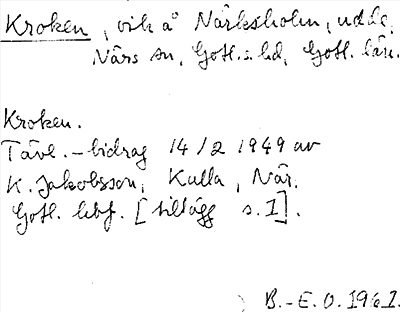 Kroken, vik å Närksholm, udde,
Närs sn, Gotl. s. hd, Gotl. län.
Kroken.
Tävl.-bidrag 14/2 1949 av
K. Jakobsson, Kulla, När.
Gotl. hbf. [tillägg s. 1].
B.-E. O. 1961.